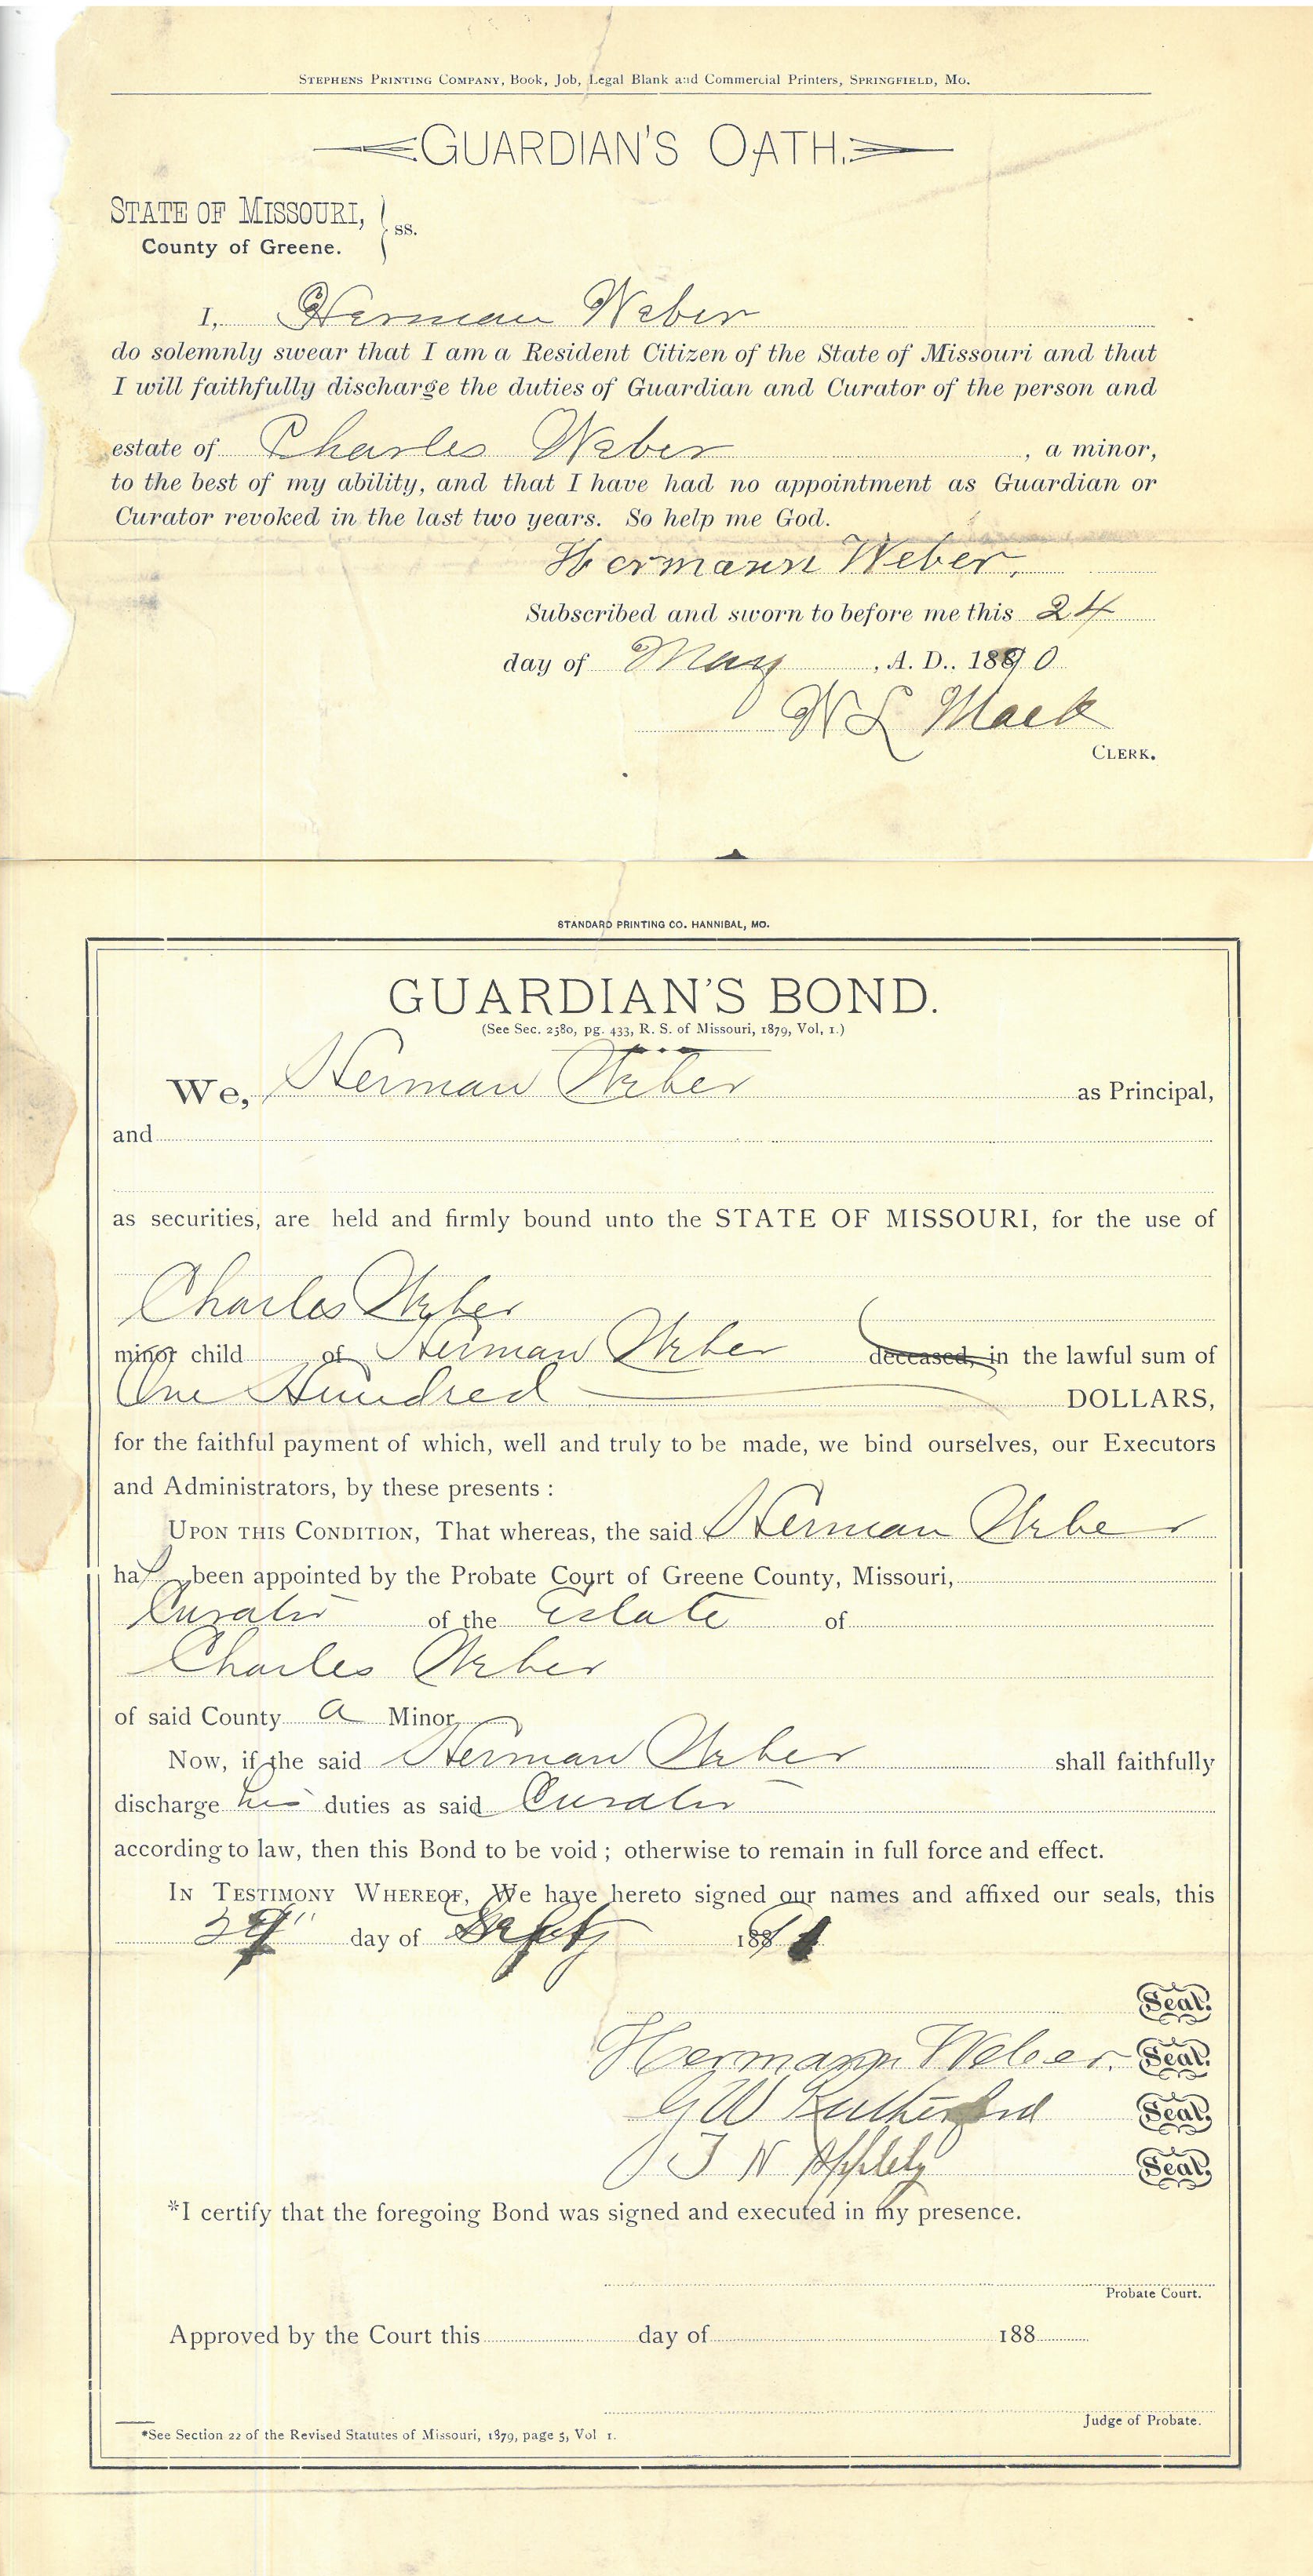 STEPHENS PRINTING COMPANY, Book, Job, Legal Blank and Commercial Printers, SPRINGFIELD, MO.
GUARDIAN'S OATH.
STATE OF MISSOURI,
County of Greene. } ss.
I, Herman Weber
do solemnly swear that I am a Resident Citizen of the State of Missouri and that
I will faithfully discharge the duties of Guardian and Curator of the person and
estate of Charles Weber , a minor,
to the best of my ability, and that I have had no appointment as Guardian or
Curator revoked in the last two years. So help me God.
Hermann Weber.
Subscribed and sworn to before me this 24
day of May , A. D., 1890
W L Mack
CLERK.
STANDARD PRINTING CO. HANNIBAL, MO.
GUARDIAN'S BOND.
(See Sec. 2580, pg. 433, R. S. of Missouri, 1879, Vol, 1.)
We, Herman Weber as Principal,
and
as securities, are held and firmly bound unto the STATE OF MISSOURI, for the use of
Charles Weber
minor child of Herman Weber deceased, in the lawful sum of
One Hundred DOLLARS,
for the faithful payment of which, well and truly to be made, we bind ourselves, our Executors
and Administrators, by these presents :
UPON THIS CONDITION, That whereas, the said Herman Weber
has been appointed by the Probate Court of Greene County, Missouri,
Curator of the Estate of
Charles Weber
of said County a Minor
Now, if the said Herman Weber shall faithfully
discharge his duties as said Curator
according to law, then this Bond to be void ; otherwise to remain in full force and effect.
IN TESTIMONY WHEREOF, We have hereto signed our names and affixed our seals, this
day of Sept 1891
Seal.
Hermann Weber. Seal.
G W Rutherford Seal.
J N Appleby Seal.
*I certify that the foregoing Bond was signed and executed in my presence.
Probate Court.
Approved by the Court this day of 188
Judge of Probate.
*See Section 22 of the Revised Statutes of Missouri, 1879, page 5, Vol 1.